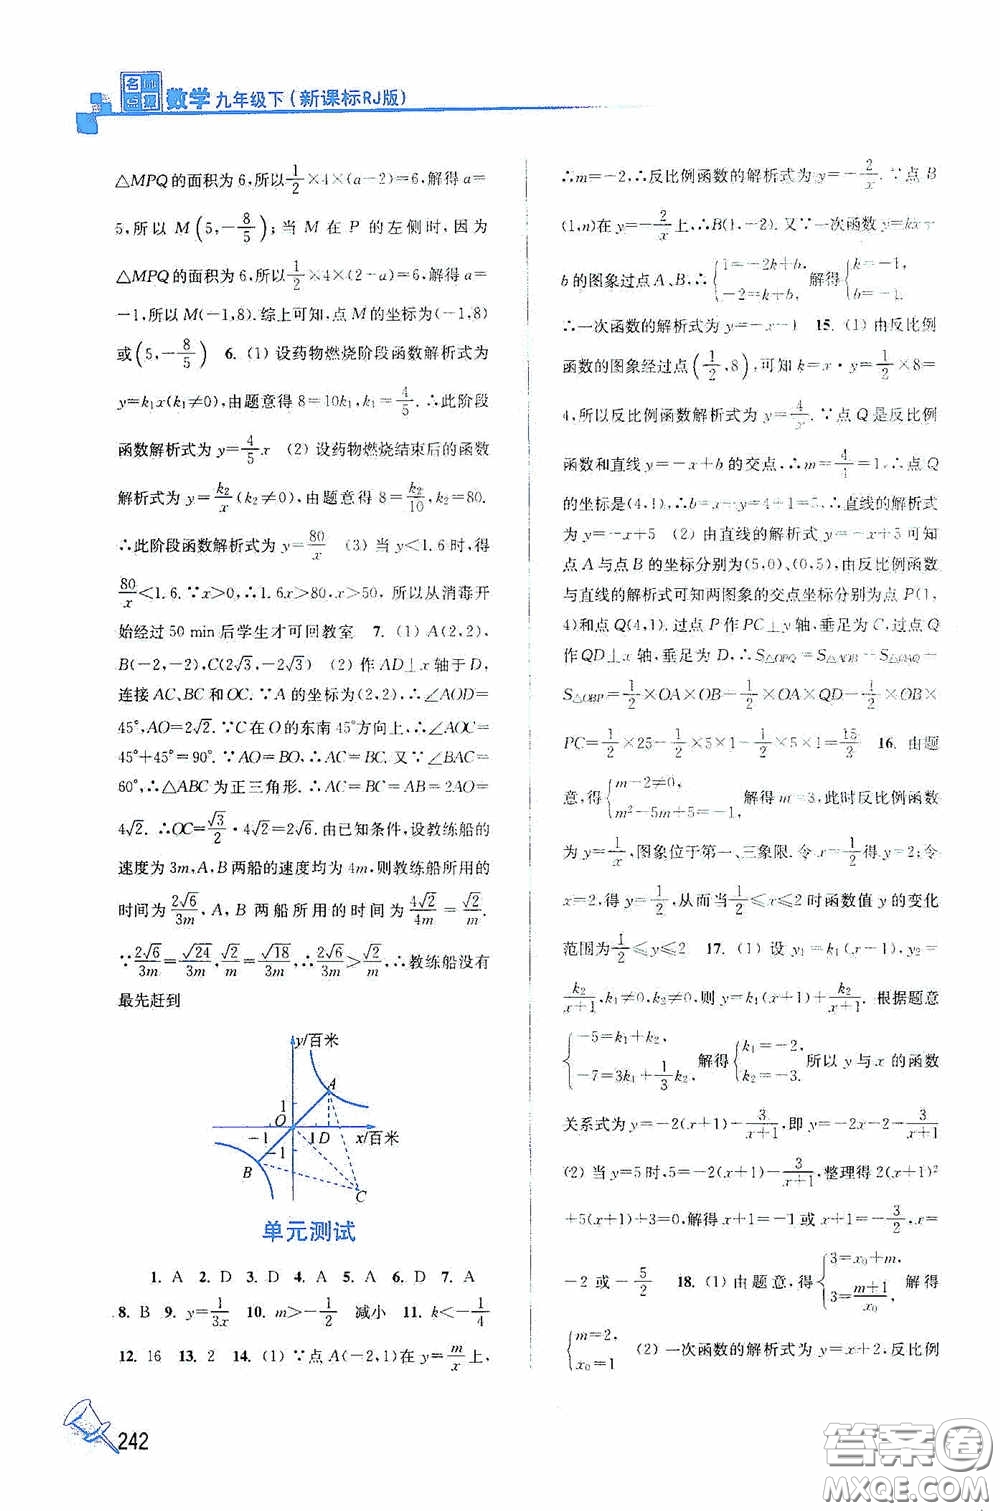 名师点拨 数学 九年级下(新课标RJ版)
△MPQ的面积为6,所以1/2×4×(a-2)=6,解得a=
5,所以M(5,-8/5);当M在P的左侧时,因为
△MPQ的面积为6,所以1/2×4×(2-a)=6,解得a=
-1,所以M(-1,8).综上可知,点M的坐标为(-1,8)
或(5,-8/5) 6. (1) 设药物燃烧阶段函数解析式为
y=k₁x(k₁≠0),由题意得8=10k₁,k₁=4/5.∴此阶段
函数解析式为y=4/5x (2) 设药物燃烧结束后的函数
解析式为y=k₂/x(k₂≠0),由题意得8=k₂/10,k₂=80.
∴此阶段函数解析式为y=80/x (3) 当y<1.6时,得
80/x<1.6.∵x>0,∴1.6x>80,x>50,所以从消毒开
始经过50 min后学生才可回教室 7. (1) A(2,2),
B(-2,-2),C(2√3,-2√3) (2) 作AD⊥x轴于D,
连接AC、BC和OC.∵A的坐标为(2,2),∴∠AOD=
45°,AO=2√2.∵C在O的东南45°方向上,∴∠AOC=
45°+45°=90°.∵AO=BO,∴AC=BC.又∵∠BAC=
60°,∴△ABC为正三角形.∴AC=BC=AB=2AO=
4√2.∴OC=√3/2·4√2=2√6.由已知条件,设教练船的
速度为3m,A、B两船的速度均为4m,则教练船所用的
时间为2√6/3m,A、B两船所用的时间为4√2/4m=√2/m.
∵2√6/3m=√24/3m,√2/m=√18/3m,∴2√6/3m>√2/m.∴教练船没有
最先赶到
y/百米
A
1
O
-1
1
D
x/百米
-1
B
C
单元测试
1. A 2. D 3. D 4. A 5. A 6. D 7. A
8. B 9. y=1/3x 10. m>-1/2 减小 11. k<-1/4
12. 16 13. 2 14. (1) ∵点A(-2,1)在y=m/x上,
∴m=-2,∴反比例函数的解析式为y=-2/x.∵点B
(1,n)在y=-2/x上,∴B(1,-2).又∵一次函数y=kx+
b的图象过点A、B,∴{1=-2k+b, -2=k+b, 解得{k=-1, b=-1.
∴一次函数的解析式为y=-x-1 15. (1) 由反比例
函数的图象经过点(1/2,8),可知k=x·y=1/2×8=
4,所以反比例函数解析式为y=4/x.∵点Q是反比例
函数和直线y=-x+b的交点,∴m=4/4=1,∴点Q
的坐标是(4,1),∴b=x+y=4+1=5,∴直线的解析式
为y=-x+5 (2) 由直线的解析式y=-x+5可知
点A与点B的坐标分别为(5,0)、(0,5),由反比例函数
与直线的解析式可知两图象的交点坐标分别为点P(1,
4)和点Q(4,1).过点P作PC⊥y轴,垂足为C,过点Q
作QD⊥x轴,垂足为D,∴S△OPQ=S△AOB-S△OAQ-
S△OBP=1/2×OA×OB-1/2×OA×QD-1/2×OB×
PC=1/2×25-1/2×5×1-1/2×5×1=15/2 16. 由题
意,得{m-2≠0, m²-5m+5=-1, 解得m=3,此时反比例函数
为y=1/x,图象位于第一、三象限.令x=1/2得y=2;令
x=2,得y=1/2,从而当1/2≤x≤2时函数值y的变化
范围为1/2≤y≤2 17. (1) 设y₁=k₁(x-1),y₂=
k₂/x+1,k₁≠0,k₂≠0,则y=k₁(x+1)+k₂/x+1.根据题意
{-5=k₁+k₂, -7=3k₁+1/3k₂, 解得{k₁=-2, k₂=-3. 所以y与x的函数
关系式为y=-2(x+1)-3/x+1,即y=-2x-2-3/x+1
(2) 当y=5时,5=-2(x+1)-3/x+1,整理得2(x+1)²
+5(x+1)+3=0,解得x+1=-1或x+1=-3/2,x=
-2或-5/2 18. (1) 由题意,得{3=x₀+m, 3=m+1/x₀ 解得
{m=2, x₀=1 (2) 一次函数的解析式为y=x+2,反比例
242
答案卷
MXQE.COM